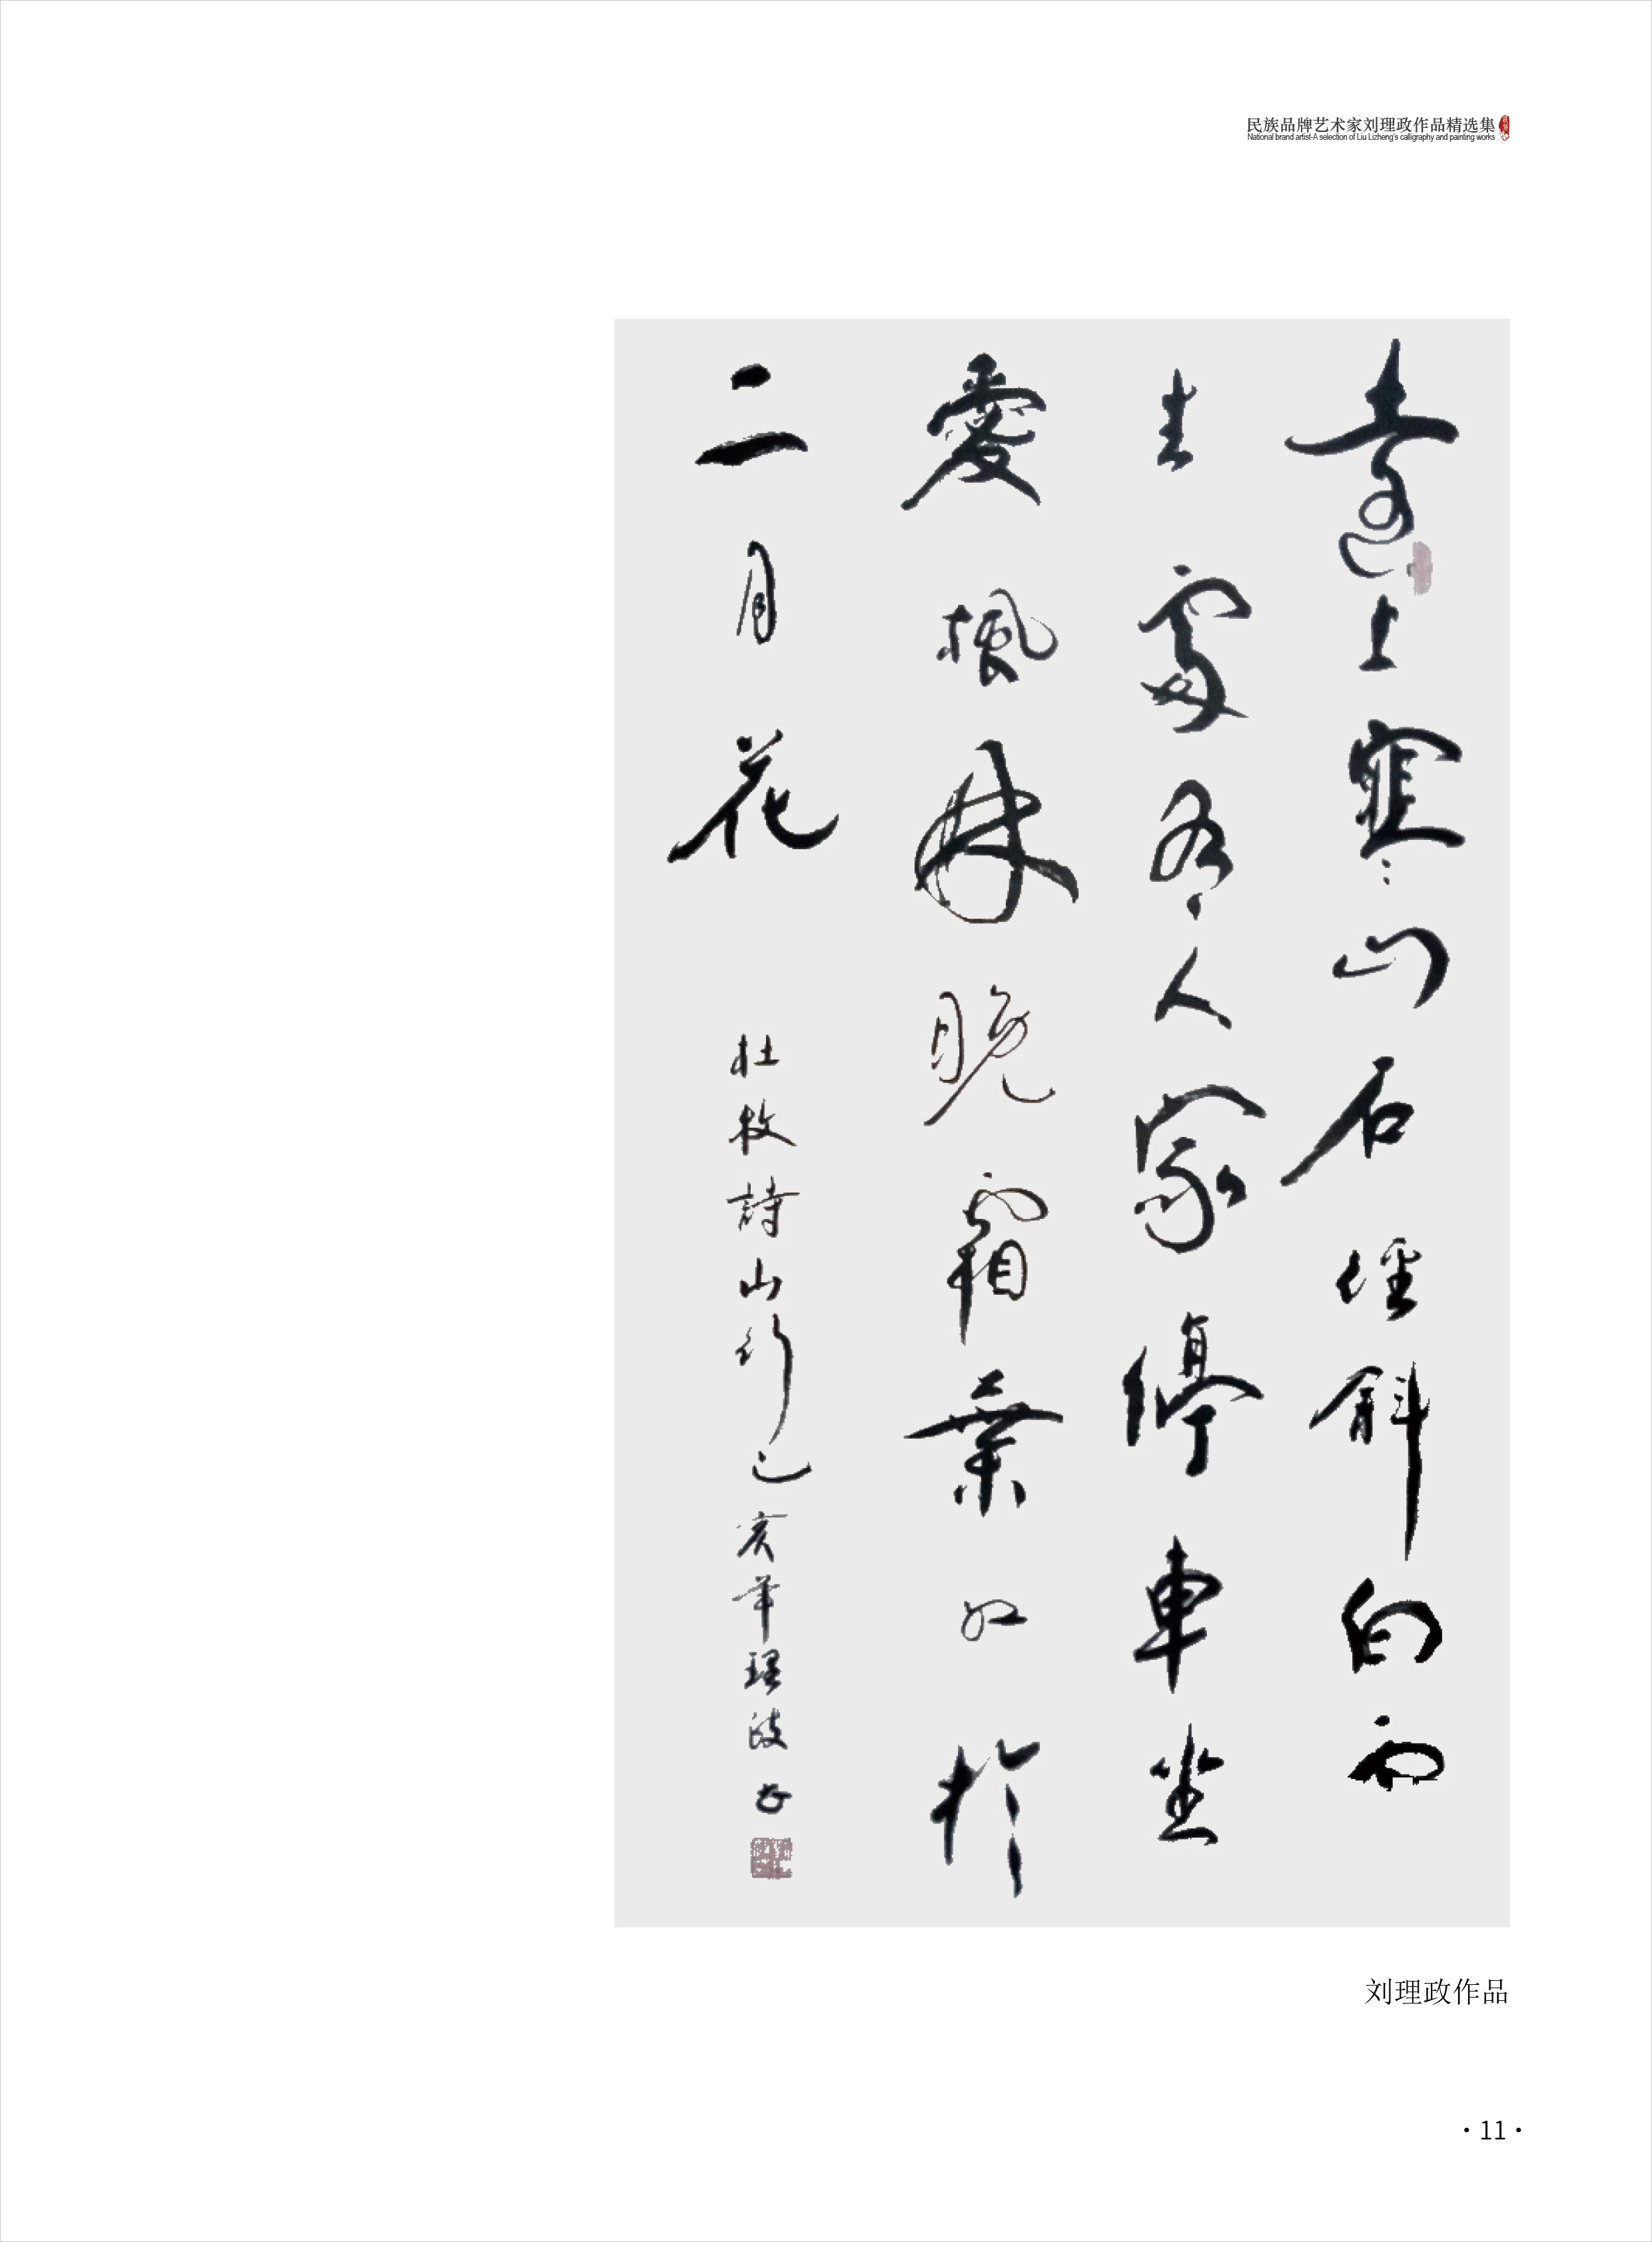 民族品牌艺术家刘理政作品精选集
National brand artist-A selection of Liu Lizheng's calligraphy and painting works
遠上寒山石徑斜白雲
生處有人家停車坐
愛楓林晚霜葉紅於
二月花
杜牧詩山行己亥年理政书
刘理政作品
·11·